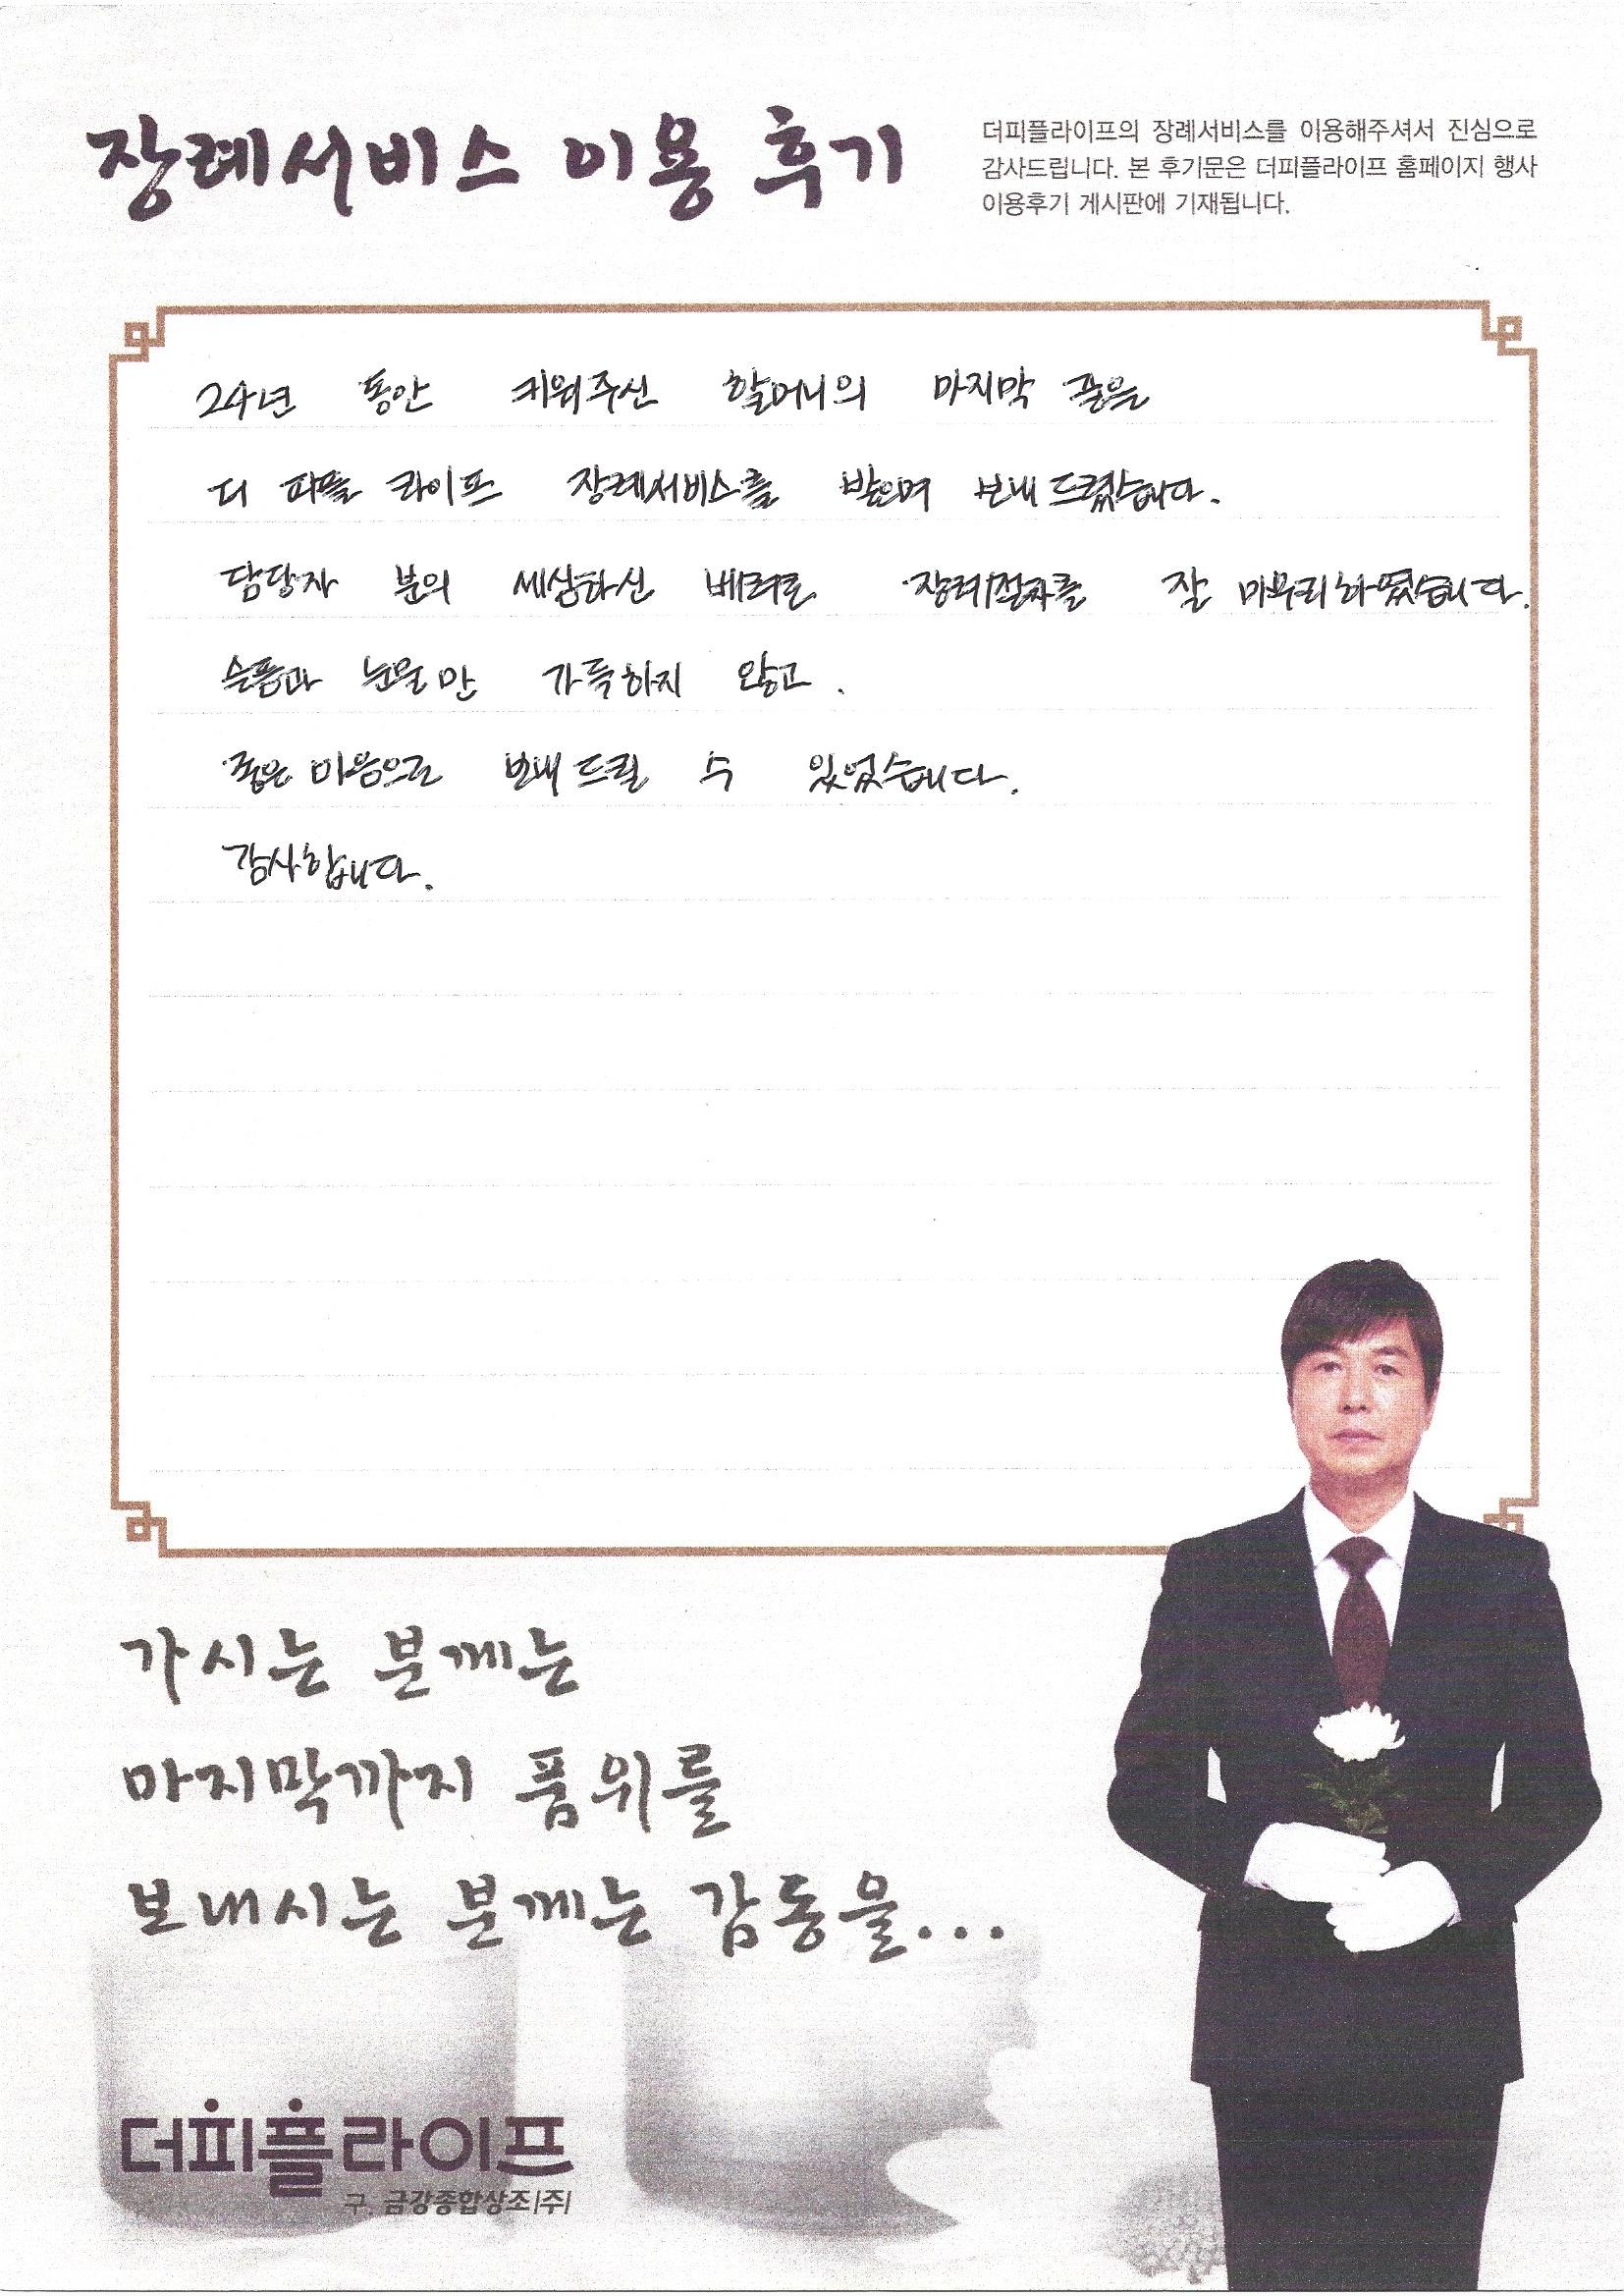 장례서비스 이용 후기
더피플라이프의 장례서비스를 이용해주셔서 진심으로
감사드립니다. 본 후기문은 더피플라이프 홈페이지 행사
이용후기 게시판에 기재됩니다.
24년 동안 키워주신 할머니의 마지막 길을
더 피플 라이프 장례서비스를 받으며 보내 드렸습니다.
담당자 분의 세심하신 배려로 장례절차를 잘 마무리하였습니다.
슬픔과 눈물만 가득하지 않고.
좋은 마음으로 보내 드릴 수 있었습니다.
감사합니다.
가시는 분께는
마지막까지 품위를
보내시는 분께는 감동을...
더피플라이프
구. 금강종합상조(주)